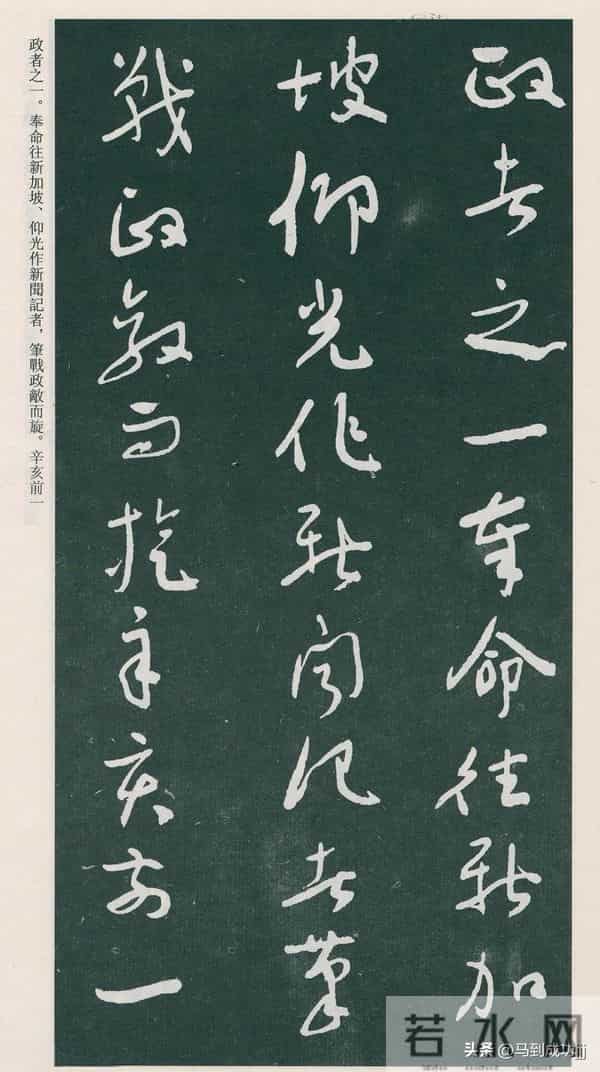 政者之一奉命往新加
坡仰光作新聞記者筆
戰政敵而旋辛亥前一
政者之一。奉命往新加坡、仰光作新聞記者，筆戰政敵而旋。辛亥前一
若水网
头条@马到成功jjj